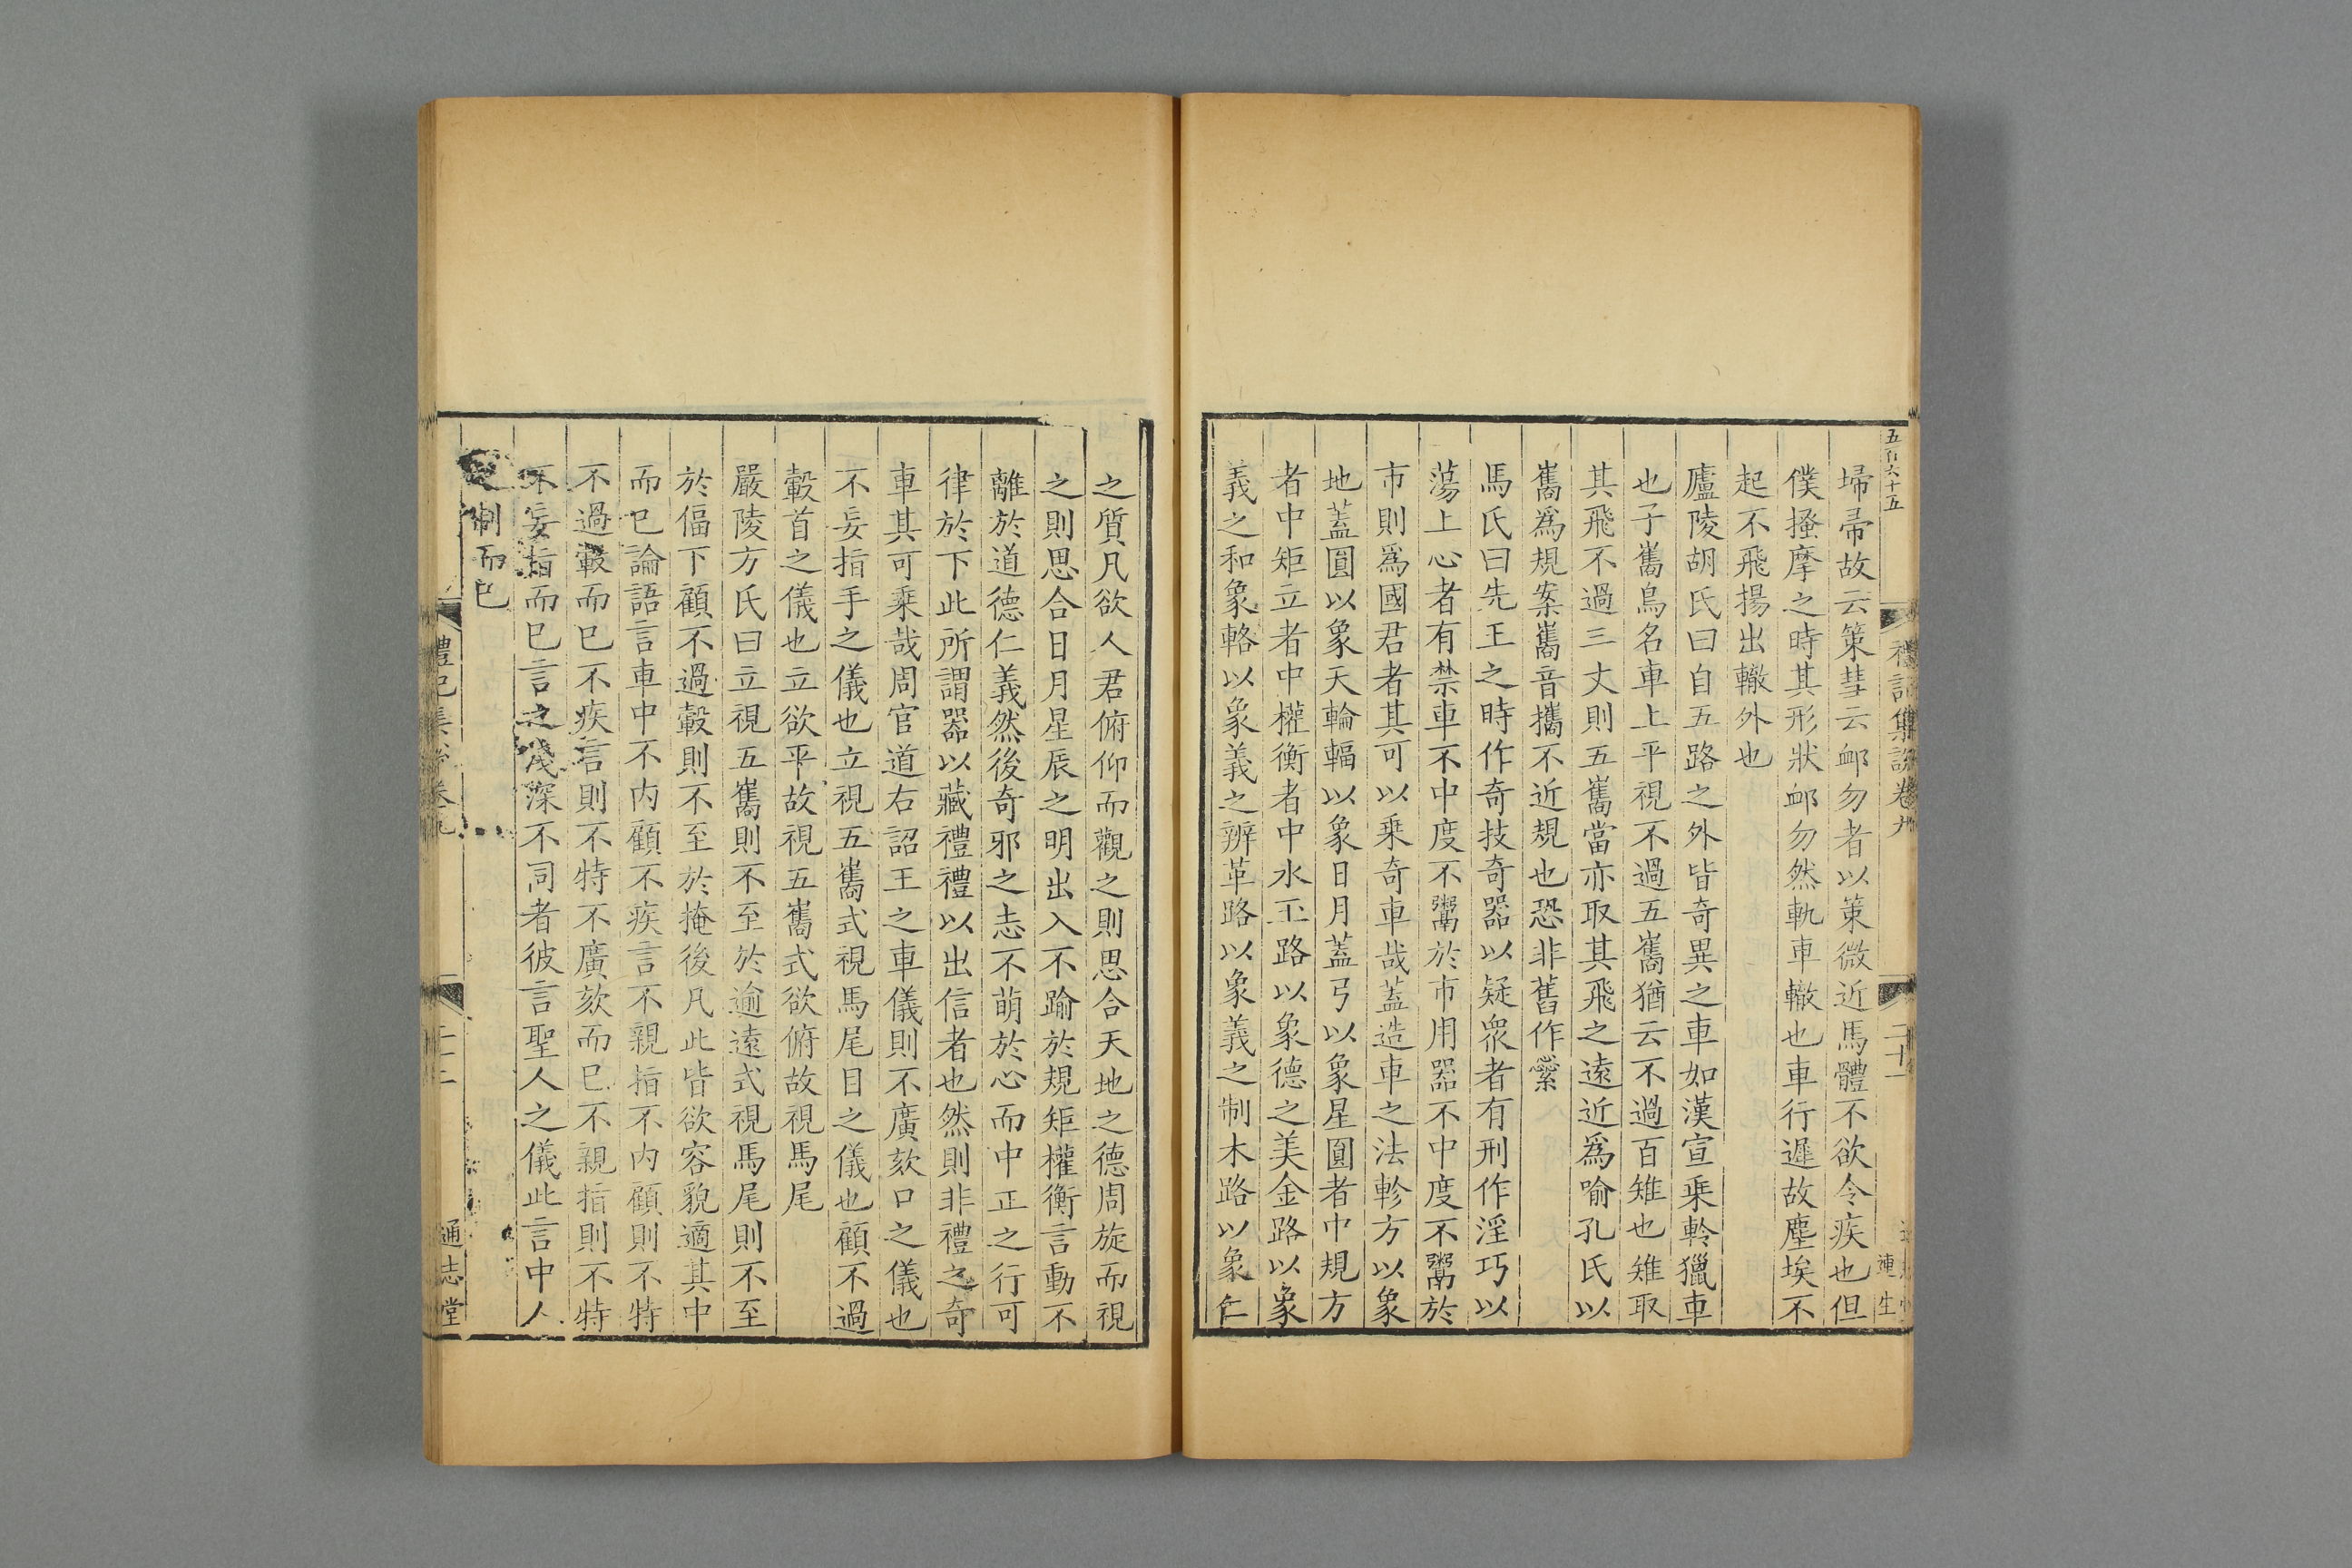 五百六十五
禮記集說卷九
二十一
連生
埽帚故云策彗云䘏勿者以策微近馬體不欲令疾也但
僕搔摩之時其形狀䘏勿然軌車轍也車行遲故塵埃不
起不飛揚出轍外也
廬陵胡氏曰自五路之外皆奇異之車如漢宣乗軨獵車
也子巂鳥名車上平視不過五巂猶云不過百雉也雉取
其飛不過三丈則五巂當亦取其飛之遠近爲喻孔氏以
巂爲規案巂音攜不近規也恐非舊作繠
馬氏曰先王之時作奇技奇器以疑衆者有刑作淫巧以
蕩上心者有禁車不中度不鬻於市用器不中度不鬻於
市則爲國君者其可以乗奇車哉蓋造車之法軫方以象
地蓋圓以象天輪輻以象日月蓋弓以象星圓者中規方
者中矩立者中權衡者中水玉路以象德之美金路以象
義之和象輅以象義之辨革路以象義之制木路以象仁
之質凡欲人君俯仰而觀之則思合天地之德周旋而視
之則思合日月星辰之明出入不踰於規矩權衡言動不
離於道德仁義然後奇邪之志不萌於心而中正之行可
律於下此所謂器以藏禮禮以出信者也然則非禮之奇
車其可乗哉周官道右詔王之車儀則不廣欬口之儀也
不妄指手之儀也立視五巂式視馬尾目之儀也顧不過
轂首之儀也立欲平故視五巂式欲俯故視馬尾
嚴陵方氏曰立視五巂則不至於逾遠式視馬尾則不至
於偪下顧不過轂則不至於掩後凡此皆欲容貌適其中
而已論語言車中不内顧不疾言不親指不内顧則不特
不過轂而已不疾言則不特不廣欬而已不親指則不特
不妄指而已言之淺深不同者彼言聖人之儀此言中人
之制而已
禮記集說卷九
通志堂